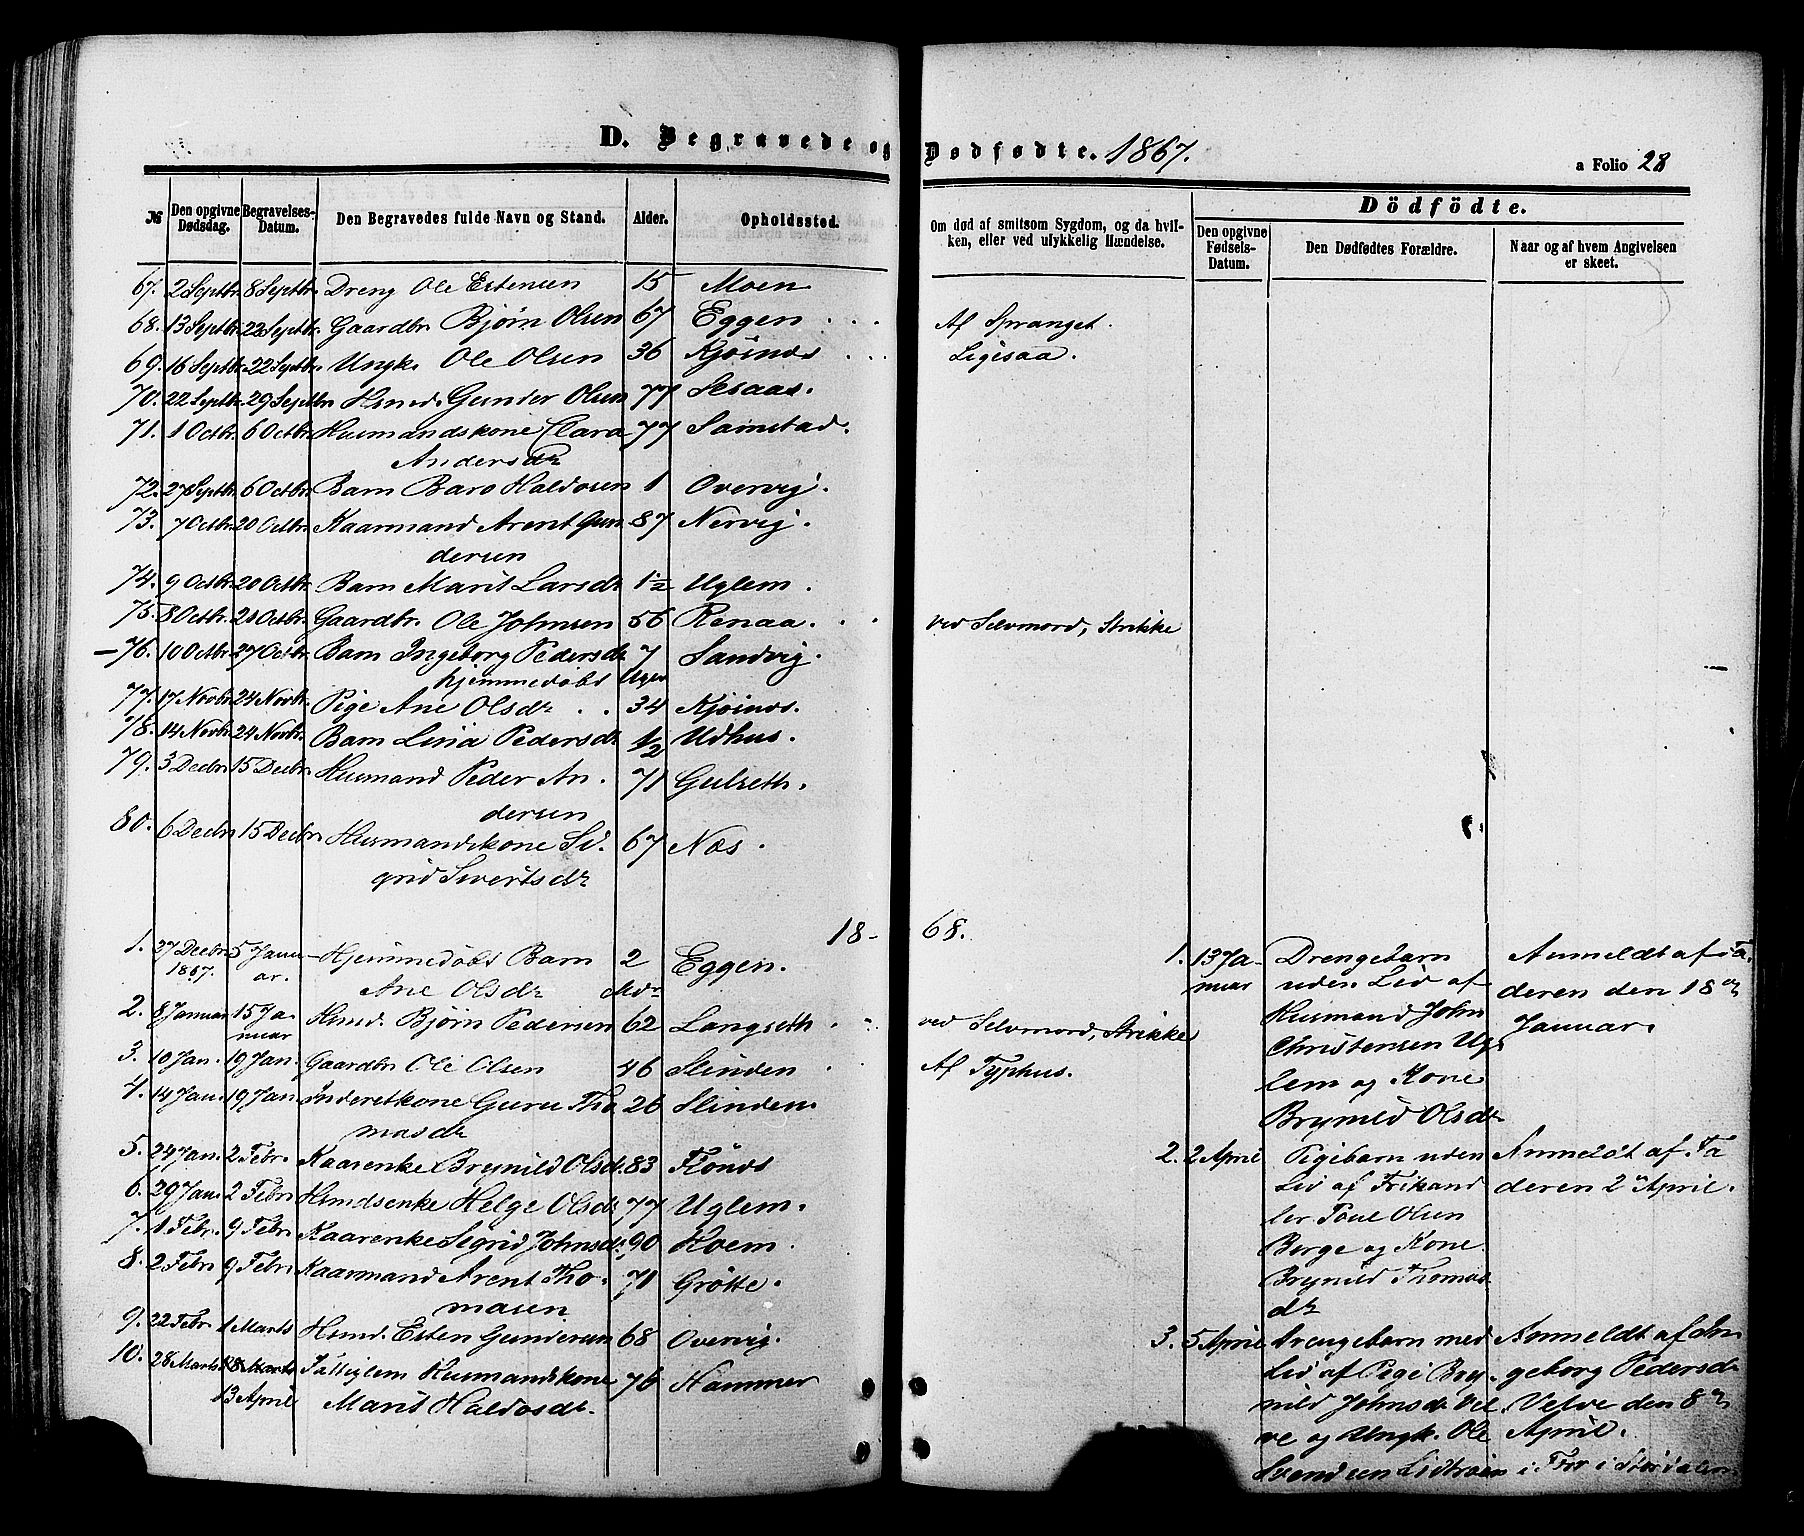 D. Begravede og Dødfødte. 1867.
a Folio 28
№ Den opgivne Dødsdag. Begravelses-Datum. Den Begravedes fulde Navn og Stand. Alder. Opholdssted.
Om død af smitsom Sygdom, og da hvil-
ken, eller ved ulykkelig Hændelse.
Dödfödte.
Den opgivne Fødsels-Datum. Den Dødfødtes Forældre. Naar og af hvem Angivelsen er skeet.
67. 2 Septbr. 8 Septbr. Dreng Ole Estensen 15 Moen
68. 13 Septbr. 22 Septbr. Gaardbr. Bjørn Olsen 67 Eggen . . . Af Spranget.
69. 16 Septbr. 22 Septbr. Ungk. Ole Olsen 36 Kjöinds . . . Ligesaa.
70. 22 Septbr. 29 Septbr. Hsmd. Gunder Olsen 77 Sesaas.
71. 1 Octbr. 6 Octbr. Husmandskone Clara 77 Samstad.
Andersdr
72. 27 Septbr. 6 Octbr. Barn Baro Haldosen 1 Overvig.
73. 7 Octbr. 20 Octbr. Kaarmand Arent Gun 87 Nervig.
dersen
74. 9 Octbr. 20 Octbr. Barn Marit Larsdr 1½ Uglem.
75. 8 Octbr. 20 Octbr. Gaardbr. Ole Johnsen 56 Renaa. . . ved Selvmord, Strikke
76. 10 Octbr. 27 Octbr. Barn Ingeborg Pedersdr 7 Sandvig.
hjemmedöbt Uger
77. 17 Novbr. 24 Novbr. Pige Ane Olsdr . . 34 Kjöinds.
78. 14 Novbr. 24 Novbr. Barn Lisa Pedersdr 1/2 Udhus.
79. 3 Decbr. 15 Decbr. Husmand Peder An. 71 Gulseth.
dersen
80. 6 Decbr 15 Decbr. Husmandskone Si. 67 Næs.
grid Sivertsdr
18- 68.
1. 27 Decbr 5 Janu- Hjemmedöbt Barn 2 Eggen.
1867. ar. Ane Olsdr Mdr
2. 8 Januar 15 Ja- Hsmd. Bjørn Pedersen 62 Langseth . . ved Selvmord, Strikke
nuar
3. 10 Jan. 19 Jan. Gaardbr Ole Olsen 46 Slinden . Af Typhus.
4. 14 Jan. 19 Jan. Inderstkone Guru Tho 26 Slinden
masdr
5. 24 Jan. 2 Febr. Kaarenke Brynild Olsd. 83 Flönds
6. 29 Jan. 2 Febr. Hsmdsenke Helge Olsdr 77 Uglem.
7. 1 Febr. 9 Febr. Kaarenke Sigrid Johnsdr. 90 Hoem.
8. 2 Febr. 9 Febr. Kaarmand Arent Tho- 71 Grötte.
masen
9. 22 Febr. 1 Marts Hsmd. Esten Gundersen 68 Overvig.
10. 28 Marts 13 April Fattiglem Husmandskone 76 Hammer
Marit Haldosdr.
1. 13 Ja- Drengebarn Anmeldt af Fa.
nuar uden Liv af deren den 18de
Husmand John Januar.
Christensen Ug.
lem og Kone
Brynild Olsdr
2. 2 April Pigebarn uden Anmeldt af Fa
Liv af Frihand deren 2den April.
ler Poul Olsen
Berge og Kone
Brynild Thomas
dr
3. 5 April Drengebarn med Anmeldt af In
Liv af Pige Bry. geborg Pedersdr
nild Johnsdr. Vel Velve den 8de
ve og Ungk. Ole April.
Svendsen Lidtröen i For i Stordalen